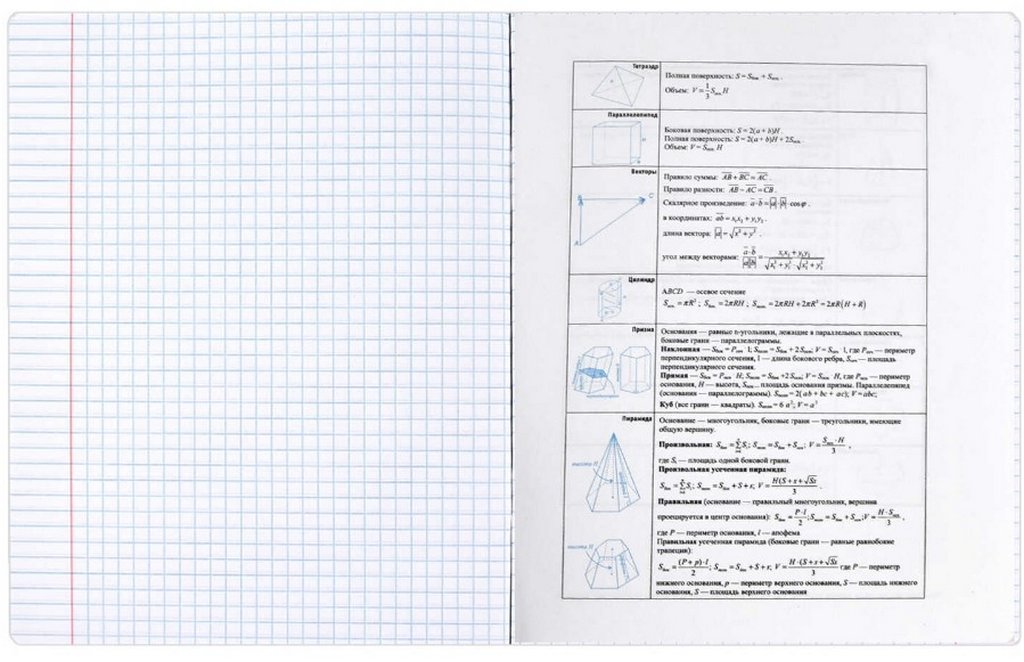 Тетраэдр
Полная поверхность: S = Sбок. + Sосн.
Объем: V = 1/3 Sосн. H
Параллелепипед
Боковая поверхность: S = 2(a + b)H.
Полная поверхность: S = 2(a + b)H + 2Sосн.
Объем: V = Sосн. H
Векторы
Правило суммы: AB + BC = AC.
Правило разности: AB − AC = CB.
Скалярное произведение: a·b = |a|·|b|·cosφ.
в координатах: ab = x₁x₂ + y₁y₂.
длина вектора: |a| = √(x² + y²).
угол между векторами: a·b / |a||b| = (x₁x₂ + y₁y₂) / (√(x₁² + y₁²)·√(x₂² + y₂²))
B
C
A
Цилиндр
ABCD — осевое сечение
Sосн = πR²; Sбок = 2πRH; Sполн = 2πRH + 2πR² = 2πR(H + R)
Призма
Основания — равные n-угольники, лежащие в параллельных плоскостях,
боковые грани — параллелограммы.
Наклонная — Sбок = Pсеч · l; Sполн = Sбок + 2Sосн; V = Sсеч · l, где Pсеч — периметр
перпендикулярного сечения, l — длина бокового ребра, Sсеч — площадь
перпендикулярного сечения.
Прямая — Sбок = Pосн · H; Sполн = Sбок + 2Sосн; V = Sосн · H, где Pосн — периметр
основания, H — высота, Sосн — площадь основания призмы. Параллелепипед
(основания — параллелограммы). Sполн = 2(ab + bc + ac); V = abc;
Куб (все грани — квадраты). Sполн = 6 a²; V = a³
Пирамида
Основание — многоугольник, боковые грани — треугольники, имеющие
общую вершину.
Произвольная: Sбок = ΣSᵢ; Sполн = Sбок + Sосн; V = Sосн · H / 3,
где Sᵢ — площадь одной боковой грани.
Произвольная усеченная пирамида:
Sбок = ΣSᵢ; Sполн = Sбок + S + s; V = H(S + s + √Ss / 3.
Правильная (основание — правильный многоугольник, вершина
проецируется в центр основания): Sбок = P · l / 2; Sполн = Sбок + Sосн; V = H · Sосн / 3,
где P — периметр основания, l — апофема
Правильная усеченная пирамида (боковые грани — равные равнобокие
трапеции):
Sбок = (P + p) · l / 2; Sполн = Sбок + S + s; V = H · (S + s + √Ss / 3 где P — периметр
нижнего основания, p — периметр верхнего основания, S — площадь нижнего
основания, S — площадь верхнего основания
высота H
высота H